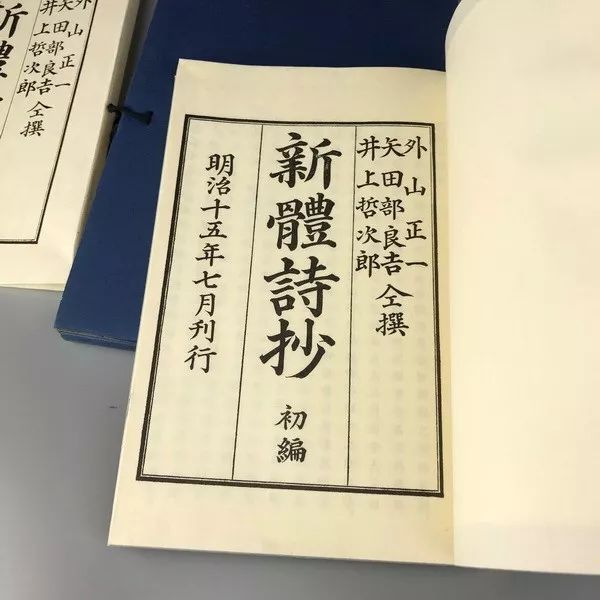 外山正一
矢田部良吉仝撰
井上哲次郎
新體詩抄初編
明治十五年七月刊行
外山正一
矢田部良吉仝撰
井上哲次郎
新體